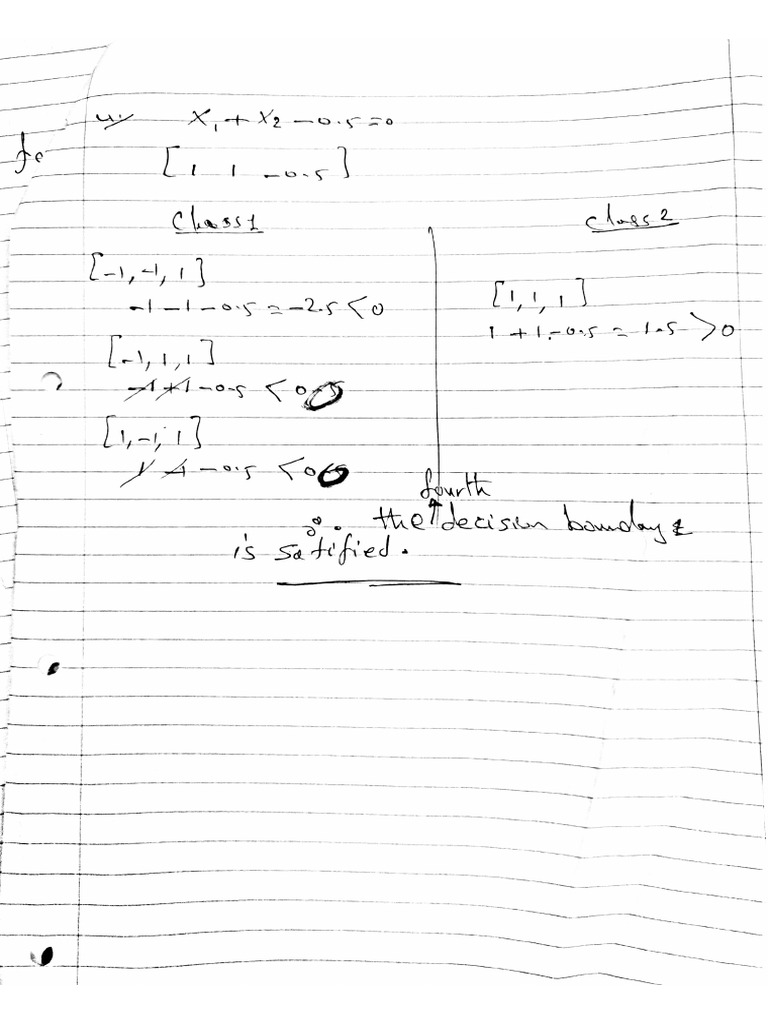 4) X₁ + X₂ - 0.5 = 0
[1 1 -0.5]
Class 1
[-1, -1, 1]
-1 - 1 - 0.5 = -2.5 < 0
[-1, 1, 1]
-1 + 1 - 0.5 < 0
[1, -1, 1]
1 -1 - 0.5 < 0
class 2
[1, 1, 1]
1 + 1 - 0.5 = 1.5 > 0
fourth
∴ the decision bounday
is satified.